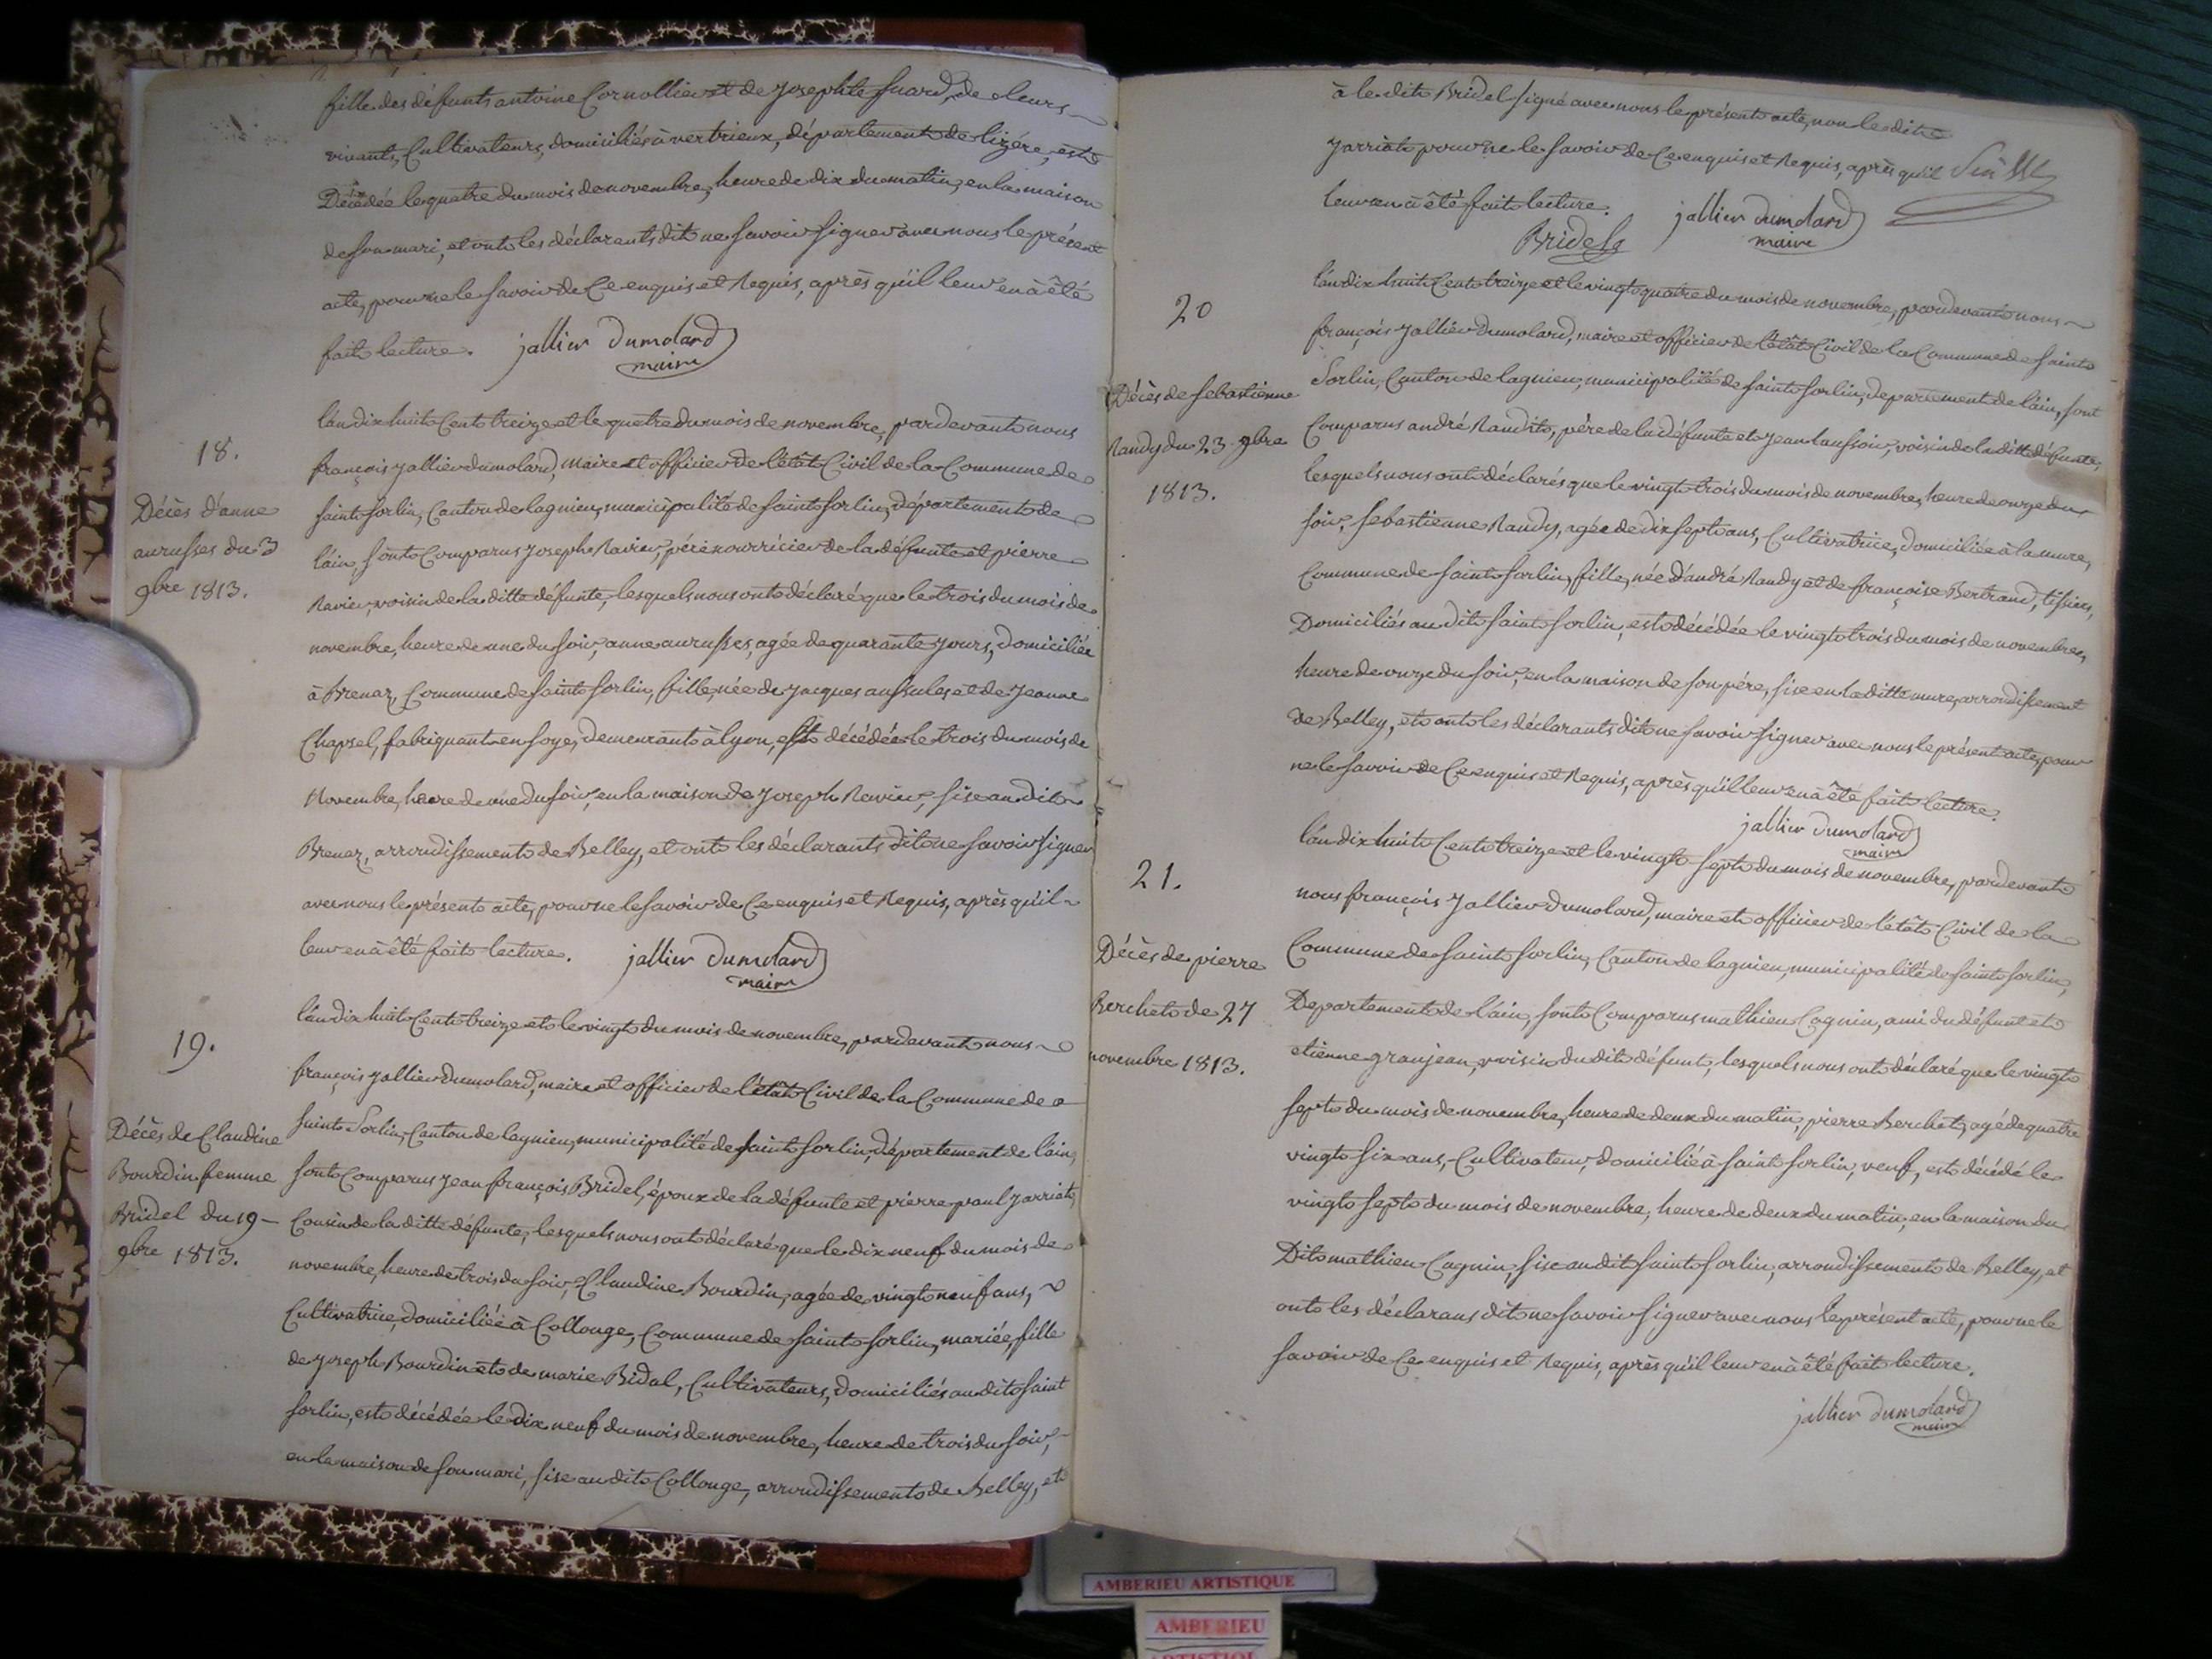 fille des défunts antoine Cornollier et de Josephte Suard, de leurs
vivants, Cultivateurs, domiciliés à vertrieux, département de lizére, est
Décédée le quatre du mois de novembre, heure de dix du matin, en la maison
de son mari, et ont les déclarents dit ne savoir signer avec nous le présent
acte, pour ne le savoir de Ce enquis et Requis, après qu'il leur en à été
fait lecture. jallier Dumolard
maire
18.
Décès d'anne
aurusses du 3
9bre 1813.
l'an dix huit Cent treize et le quatre du mois de novembre, pardevant nous
françois Jallier dumolard, Maire et officier de l'état Civil de la Commune de
saint sorlin, Canton de lagnieu, municipalité de saint sorlin, département de
l'ain, sont Comparus Joseph Ravier, pére nourricier de la défunte et pierre
Ravier, voisin de la ditte défunte, lesquels nous ont déclaré que le trois du mois de
novembre, heure de une du soir, anne aurusses, agée de quarante jours, domiciliée
à Brenaz, Commune de saint sorlin, fille née de Jacques aussules et de Jeanne
Chapsel, fabriquant en soye, demeurant à lyon, est décédée le trois du mois de
Novembre, heure de une du soir, en la maison de Joseph Ravier, sise au dit
Brenaz, arrondissement de Belley, et ont les déclarants dit ne savoir signer
avec nous le présent acte, pour ne le savoir de Ce enquis et Requis, après qu'il
leur en à été fait lecture. jallier Dumolard
maire
19.
Décès de Claudine
Bourdin femme
Bridel du 19
9bre 1813.
l'an dix huit Cent treize et le vingt du mois de novembre, pardevant nous
françois Jallier Dumolard, maire et officier de l'état Civil de la Commune de
saint Sorlin, Canton de lagnieu, municipalité de saint sorlin, département de l'ain,
sont Comparus Jean françois Bridel, époux de la défunte et pierre paul Jarriat,
Cousin de la ditte défunte, lesquels nous ont déclaré que le dix neuf du mois de
novembre, heure de trois du soir, Claudine Bourdin, agée de vingt neuf ans,
Cultivatrice, domiciliée à Collonge, Commune de saint sorlin, mariée, fille
de Joseph Bourdin et de marie Bidal, Cultivateurs, domiciliés au dit saint
sorlin, est décédée le dix neuf du mois de novembre, heure de trois du soir,
en la maison de son mari, sise au dit Collonge, arrondissement de Belley, et
à le dit Bridel signé avec nous le présent acte, non le dit
Jarriat pour ne le savoir de Ce enquis et Requis, après qu'il
leur en à été fait lecture. jallier dumolard
Bridel maire
20
Décès de sebastienne
Randy du 23 9bre
1813.
l'an dix huit Cent treize et le vingt quatre du mois de novembre, pardevant nous
françois Jallier Dumolard, maire et officier de l'état Civil de la Commune de saint
Sorlin, Canton de lagnieu, municipalité de saint sorlin, département de l'ain, sont
Comparus andré Randit, pére de la défunte et Jean laussoir, voisin de la ditte défunte,
lesquels nous ont déclarés que le vingt trois du mois de novembre, heure de onze du
soir, sebastienne Randy, agée de dix sept ans, Cultivatrice, domiciliée à la mure,
Commune de saint sorlin, fille, née d'andré Randy et de françoise Bertrand, tissiers,
Domiciliés au dit saint sorlin, est décédée le vingt trois du mois de novembre,
heure de onze du soir, en la maison de son pére, sise en la ditte mure, arrondissement
de Belley, et ont les déclarants dit ne savoir signer avec nous le présent acte, pour
ne le savoir de Ce enquis et Requis, après qu'il leur en à été fait lecture.
jallier Dumolard
maire
21.
Décès de pierre
Berchet de 27
novembre 1813.
l'an dix huit Cent treize et le vingt sept du mois de novembre, pardevant
nous françois Jallier Dumolard, maire et officier de l'état Civil de la
Commune de saint sorlin, Canton de lagnieu, municipalité de saint sorlin,
Departement de l'ain, sont Comparus mathieu Cagnin, ami du défunt et
etienne granjean, voisin du dit défunt, lesquels nous ont déclaré que le vingt
sept du mois de novembre, heure de deux du matin, pierre Berchet, agé de quatre
vingt six ans, Cultivateur, domicilié à saint sorlin, veuf, est décédé le
vingt sept du mois de novembre, heure de deux du matin, en la maison du
Dit mathieu Cagnin, sise au dit saint sorlin, arrondissement de Belley, et
ont les déclarans dit ne savoir signer avec nous le présent acte, pour ne le
savoir de Ce enquis et Requis, après qu'il leur en à été fait lecture.
jallier dumolard
maire
AMBERIEU ARTISTIQUE
AMBERIEU
ARTISTIQUE